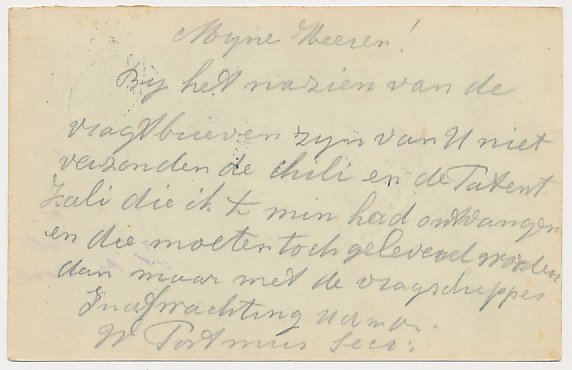 Mijne Heeren!
Bij het nazien van de
vragtbrieven zijn van U niet
verzonden de chili en de Patent
Kali die ik te min had ontvangen
en die moeten toch geleverd worden
dan maar met de vragschippes
In afwachting
W Portmus Secr: